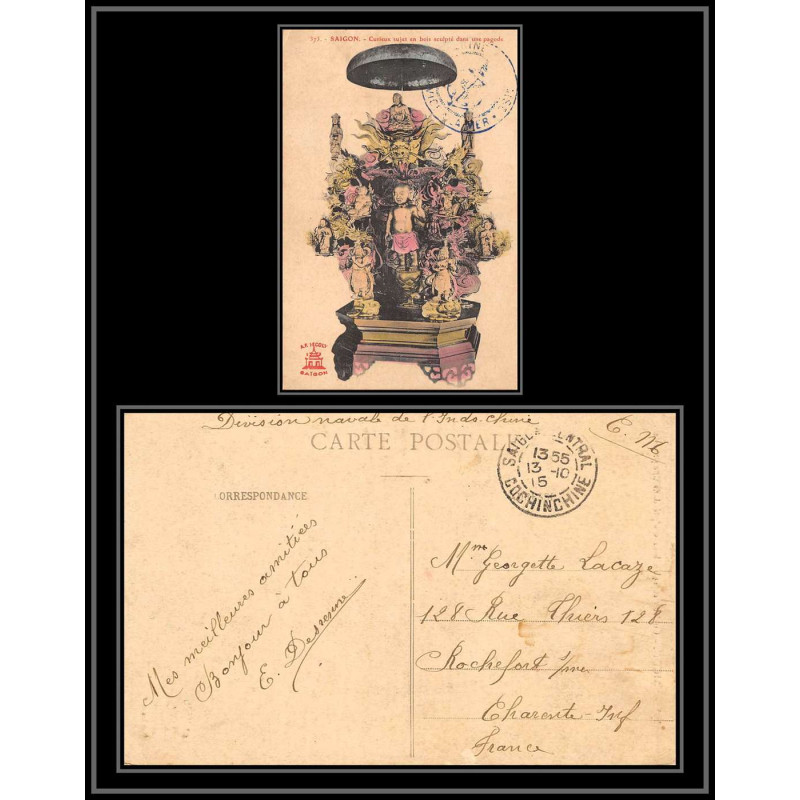 375. - SAIGON. - Curieux sujet en bois sculpté dans une pagode
A.F. DECOLY
SAIGON
Division navale de l'Indo-Chine
C. M
CARTE POSTALE
SAIGON-CENTRAL
1355
13 -10
15
COCHINCHINE
CORRESPONDANCE
Mes meilleures amitiées
Bonjour à tous
E.
Mme Georgette Lacaze
128 Rue Thiers 128
Rochefort s/mer
Charente-Inf
France